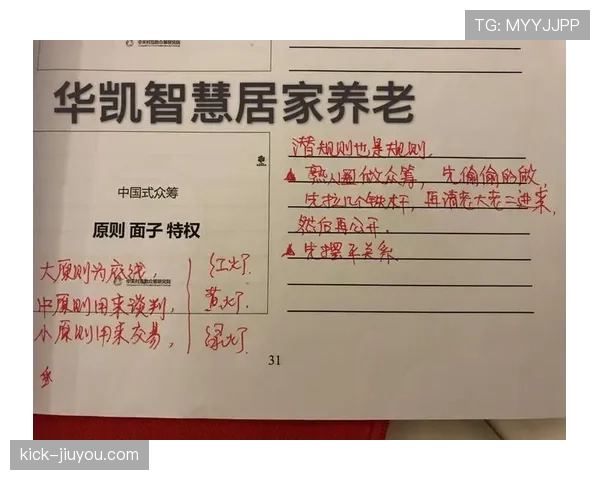 TG: MYYJJPP
华凯智慧居家养老
中国式众筹
原则 面子 特权
大原则为底线,
红灯
中原则用来谈判,
黄灯
小原则用来交易,
绿灯
潜规则也是规则.
熟人圈做众筹, 先偷偷的做,
先拉几个铁杆, 再请老大老二进来,
然后再公开.
先摆平关系.
31
kick-jiuyou.com